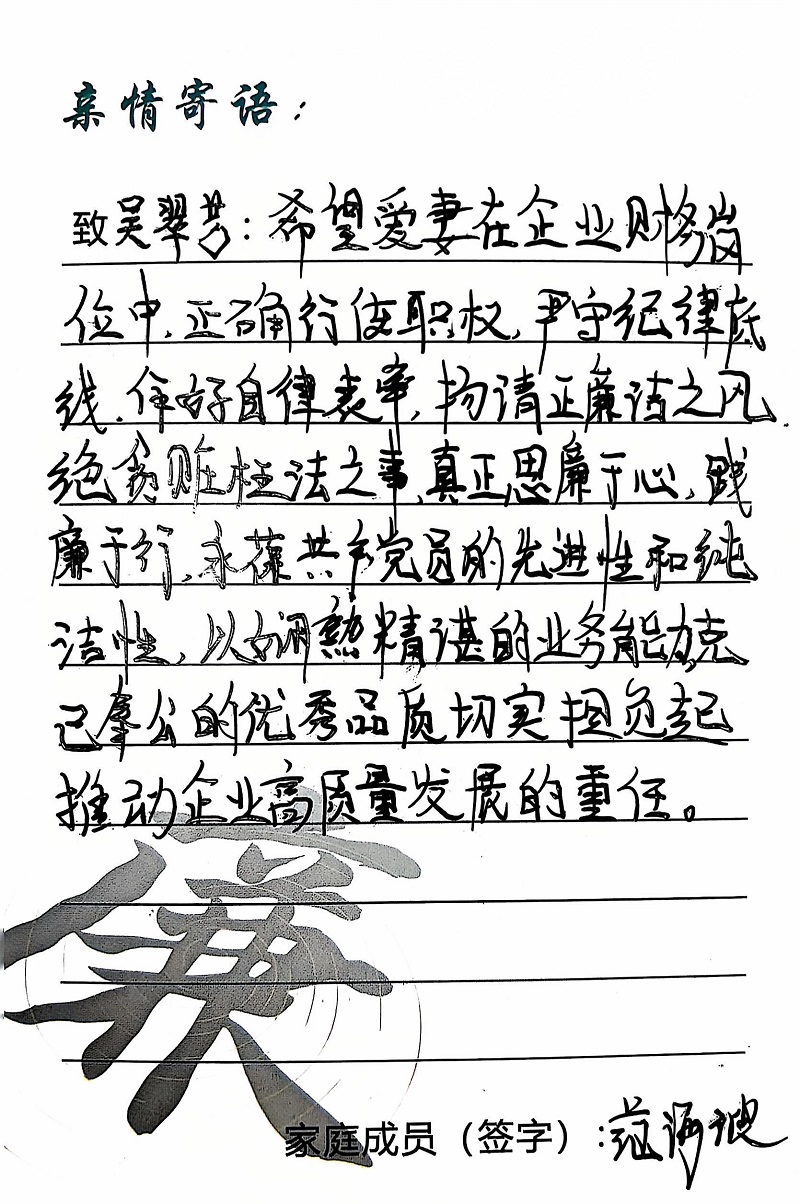 亲情寄语：
致吴翠芳：希望爱妻在企业财务岗
位中，正确行使职权，严守纪律底
线，作好自律表率，扬清正廉洁之风
绝贪赃枉法之事，真正思廉于心，践
廉于行，永葆共产党员的先进性和纯
洁性，以娴熟精谌的业务能力，克
己奉公的优秀品质切实担负起
推动企业高质量发展的重任。
廉
家庭成员（签字）：范海